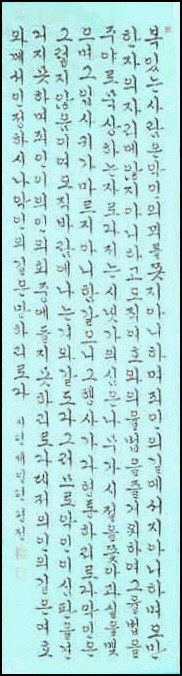 복있는사람은악인의꾀를좇지아니하며죄인의길에서지아니하며오만
한자의자리에앉지아니하고오직여호와의율법을즐거워하여그율법을
주야로묵상하는자로다저는시냇가에심은나무가시절을좇아과실을맺
으며그잎사귀가마르지아니함같으니그행사가다형통하리로다악인은
그렇지않음이여오직바람에나는겨와같도다그러므로악인이심판을견
디지못하며죄인이의인의회중에들지못하리로다대저의인의길은여호
와께서인정하시나악인의길은망하리로다 시편 제일편